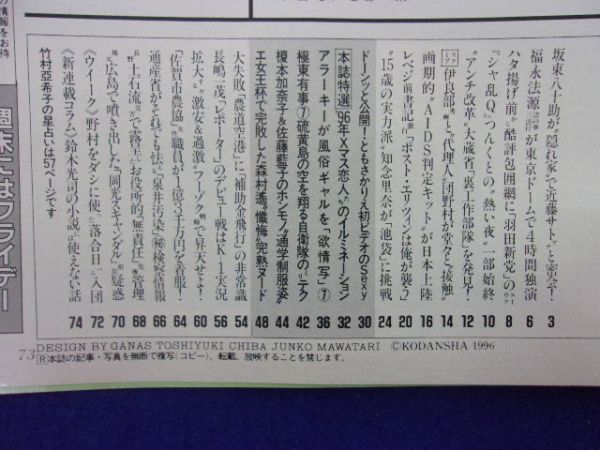 坂東八十助が“隠れ家”で近藤サトと密会! 3
福永法源 が東京ドームで4時間独演 6
ハタ揚げ前“酷評包囲網”に「羽田新党」の 8
“シャ乱Q”つんくとの“熱い夜”一部始終 10
“アンチ改革”大蔵省「裏工作部隊」を発見! 12
伊良部 と“代理人”団野村が堂々と“接触” 14
画期的“AIDS判定キット”が日本上陸 16
レベジ前書記 「ポスト・エリツィンは俺が襲う」 20
“15歳の実力派”知念里奈が“池袋”に挑戦 24
ドーンッと公開!ともさかりえ初ビデオのSexy 30
本誌特選 '96年Xマス恋人たちのイルミネーション 32
アラーキーが風俗ギャルを「欲情写」⑦ 36
極東有事⑦硫黄島の空を翔る自衛隊の“テク 42
榎本加奈子&佐藤藍子のホンモノ“通学制服姿” 44
エ女王杯で完敗した森村遥“懺悔”完熟ヌード 48
大失敗「農道空港」に「補助金飛行」の非常識 54
長嶋一茂「レポーター」のデビュー戦はK-1実況 56
拡大ο激安&過激“フーゾク で昇天せよ! 60
「佐賀市農協」職員が1億3千万円を着服! 64
通産省がそれでも怯える“泉井汚染”㊙検察情報 66
土石流 で露呈“お役所的”無責任 管理 68
広島で噴き出した「岡光スキャンダル」 疑惑 70
〈ウイーク〉野村をダシに使った落合日ハム入団 72
《新連載コラム》鈴木光司の小説に使えない話 74
竹村亞希子の星占いは57ページです
週末にはフライデー
73
DESIGN BY GANAS TOSHIYUKI CHIBA JUNKO MAWATARI ©KODANSHA 1996
Ⓡ本誌の記事・写真を無断で複写(コピー)、転載、放映することを禁じます。